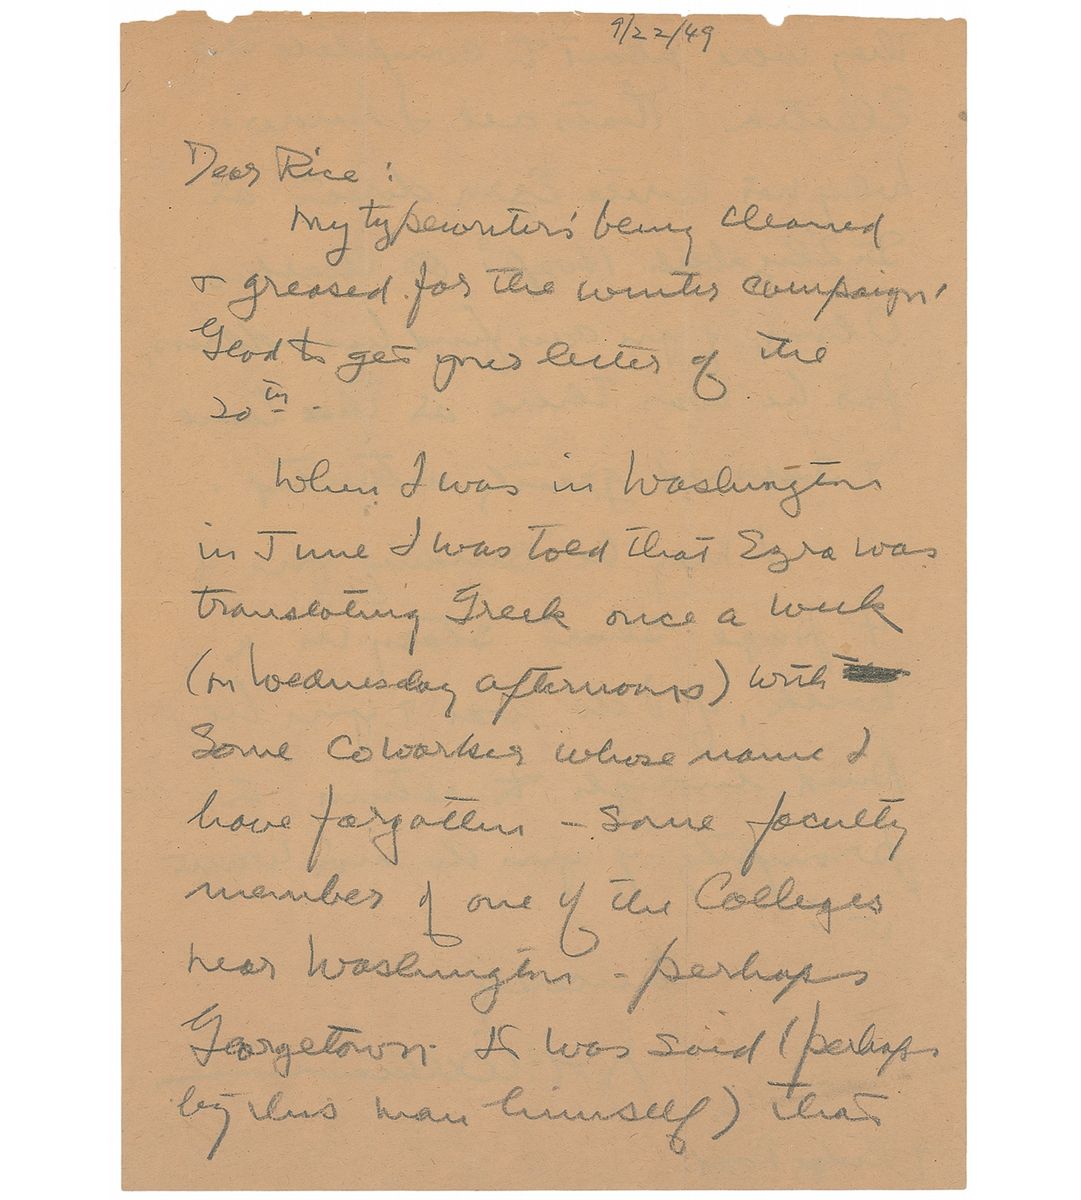 9/22/49
Dear Rice:
My typewriter's being cleaned
& greased for the winter campaign.
Glad to get your letter of the
20th.
When I was in Washington
in June I was told that Ezra was
translating Greek once a week
(on Wednesday afternoons) with
some coworker whose name I
have forgotten - some faculty
member of one of the Colleges
near Washington - perhaps
Georgetown. It was said (perhaps
by this man himself) that